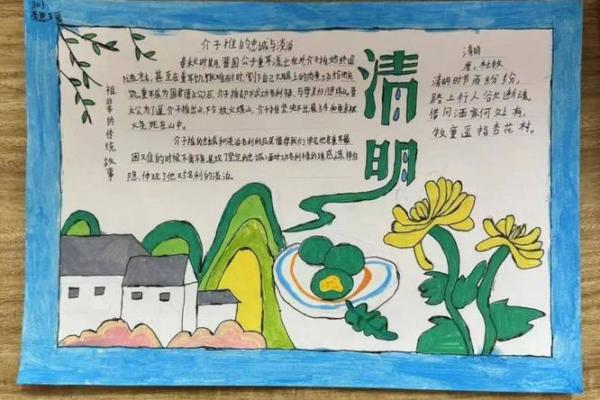 301
介子推的忠诚与淡泊
春秋时期,晋国公子重耳流亡在外介子推始终追
随左右,甚至在重耳饥饿难耐时,割下自己大腿上的肉煮汤给他充
饥,重耳成为国君后,介子推却不求功名利禄,与母亲归隐绵山,晋
文公为了逼介子推出山,下令放火烧山,介子推坚决不出最终和母亲被
火死在山中。
介子推的忠诚和淡泊名利的品质值得我们学习他在重耳最
困难的时候不离不弃,展现了坚定的忠诚;面对功名利禄的诱惑选择归
隐,体现了他对名利的淡泊。
的传统故事
清明
清明
唐,杜牧
清明时节雨纷纷,
路上行人欲断魂,
借问酒家何处有,
牧童遥指杏花村。